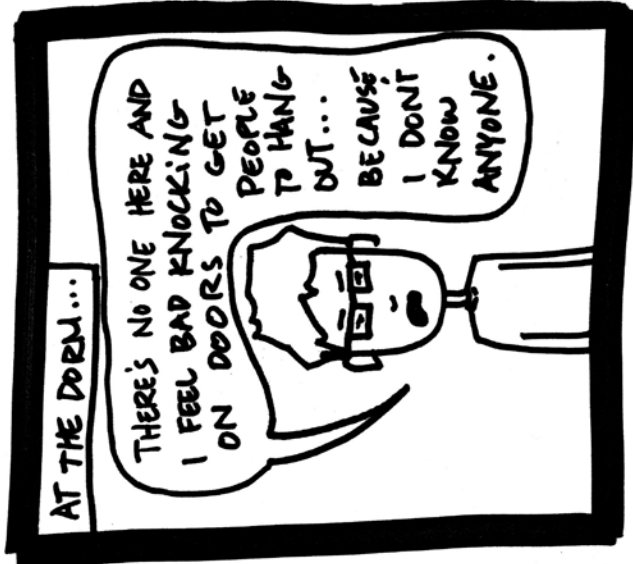 AT THE DORM...
THERE'S NO ONE HERE AND
I FEEL BAD KNOCKING
ON DOORS TO GET
PEOPLE
TO HANG
OUT...
BECAUSE
I DON'T
KNOW
ANYONE.